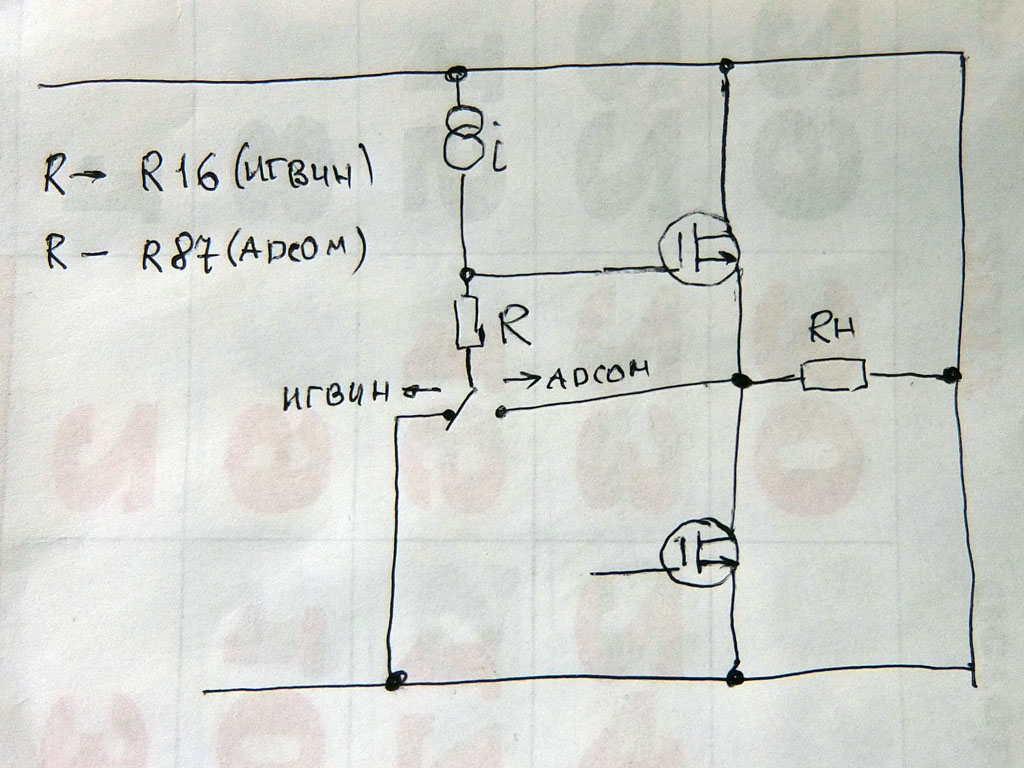 i
R → R16 (ИГВИН)
R – R87 (ADCOM)
R
RН
ИГВИН ←
→ ADCOM